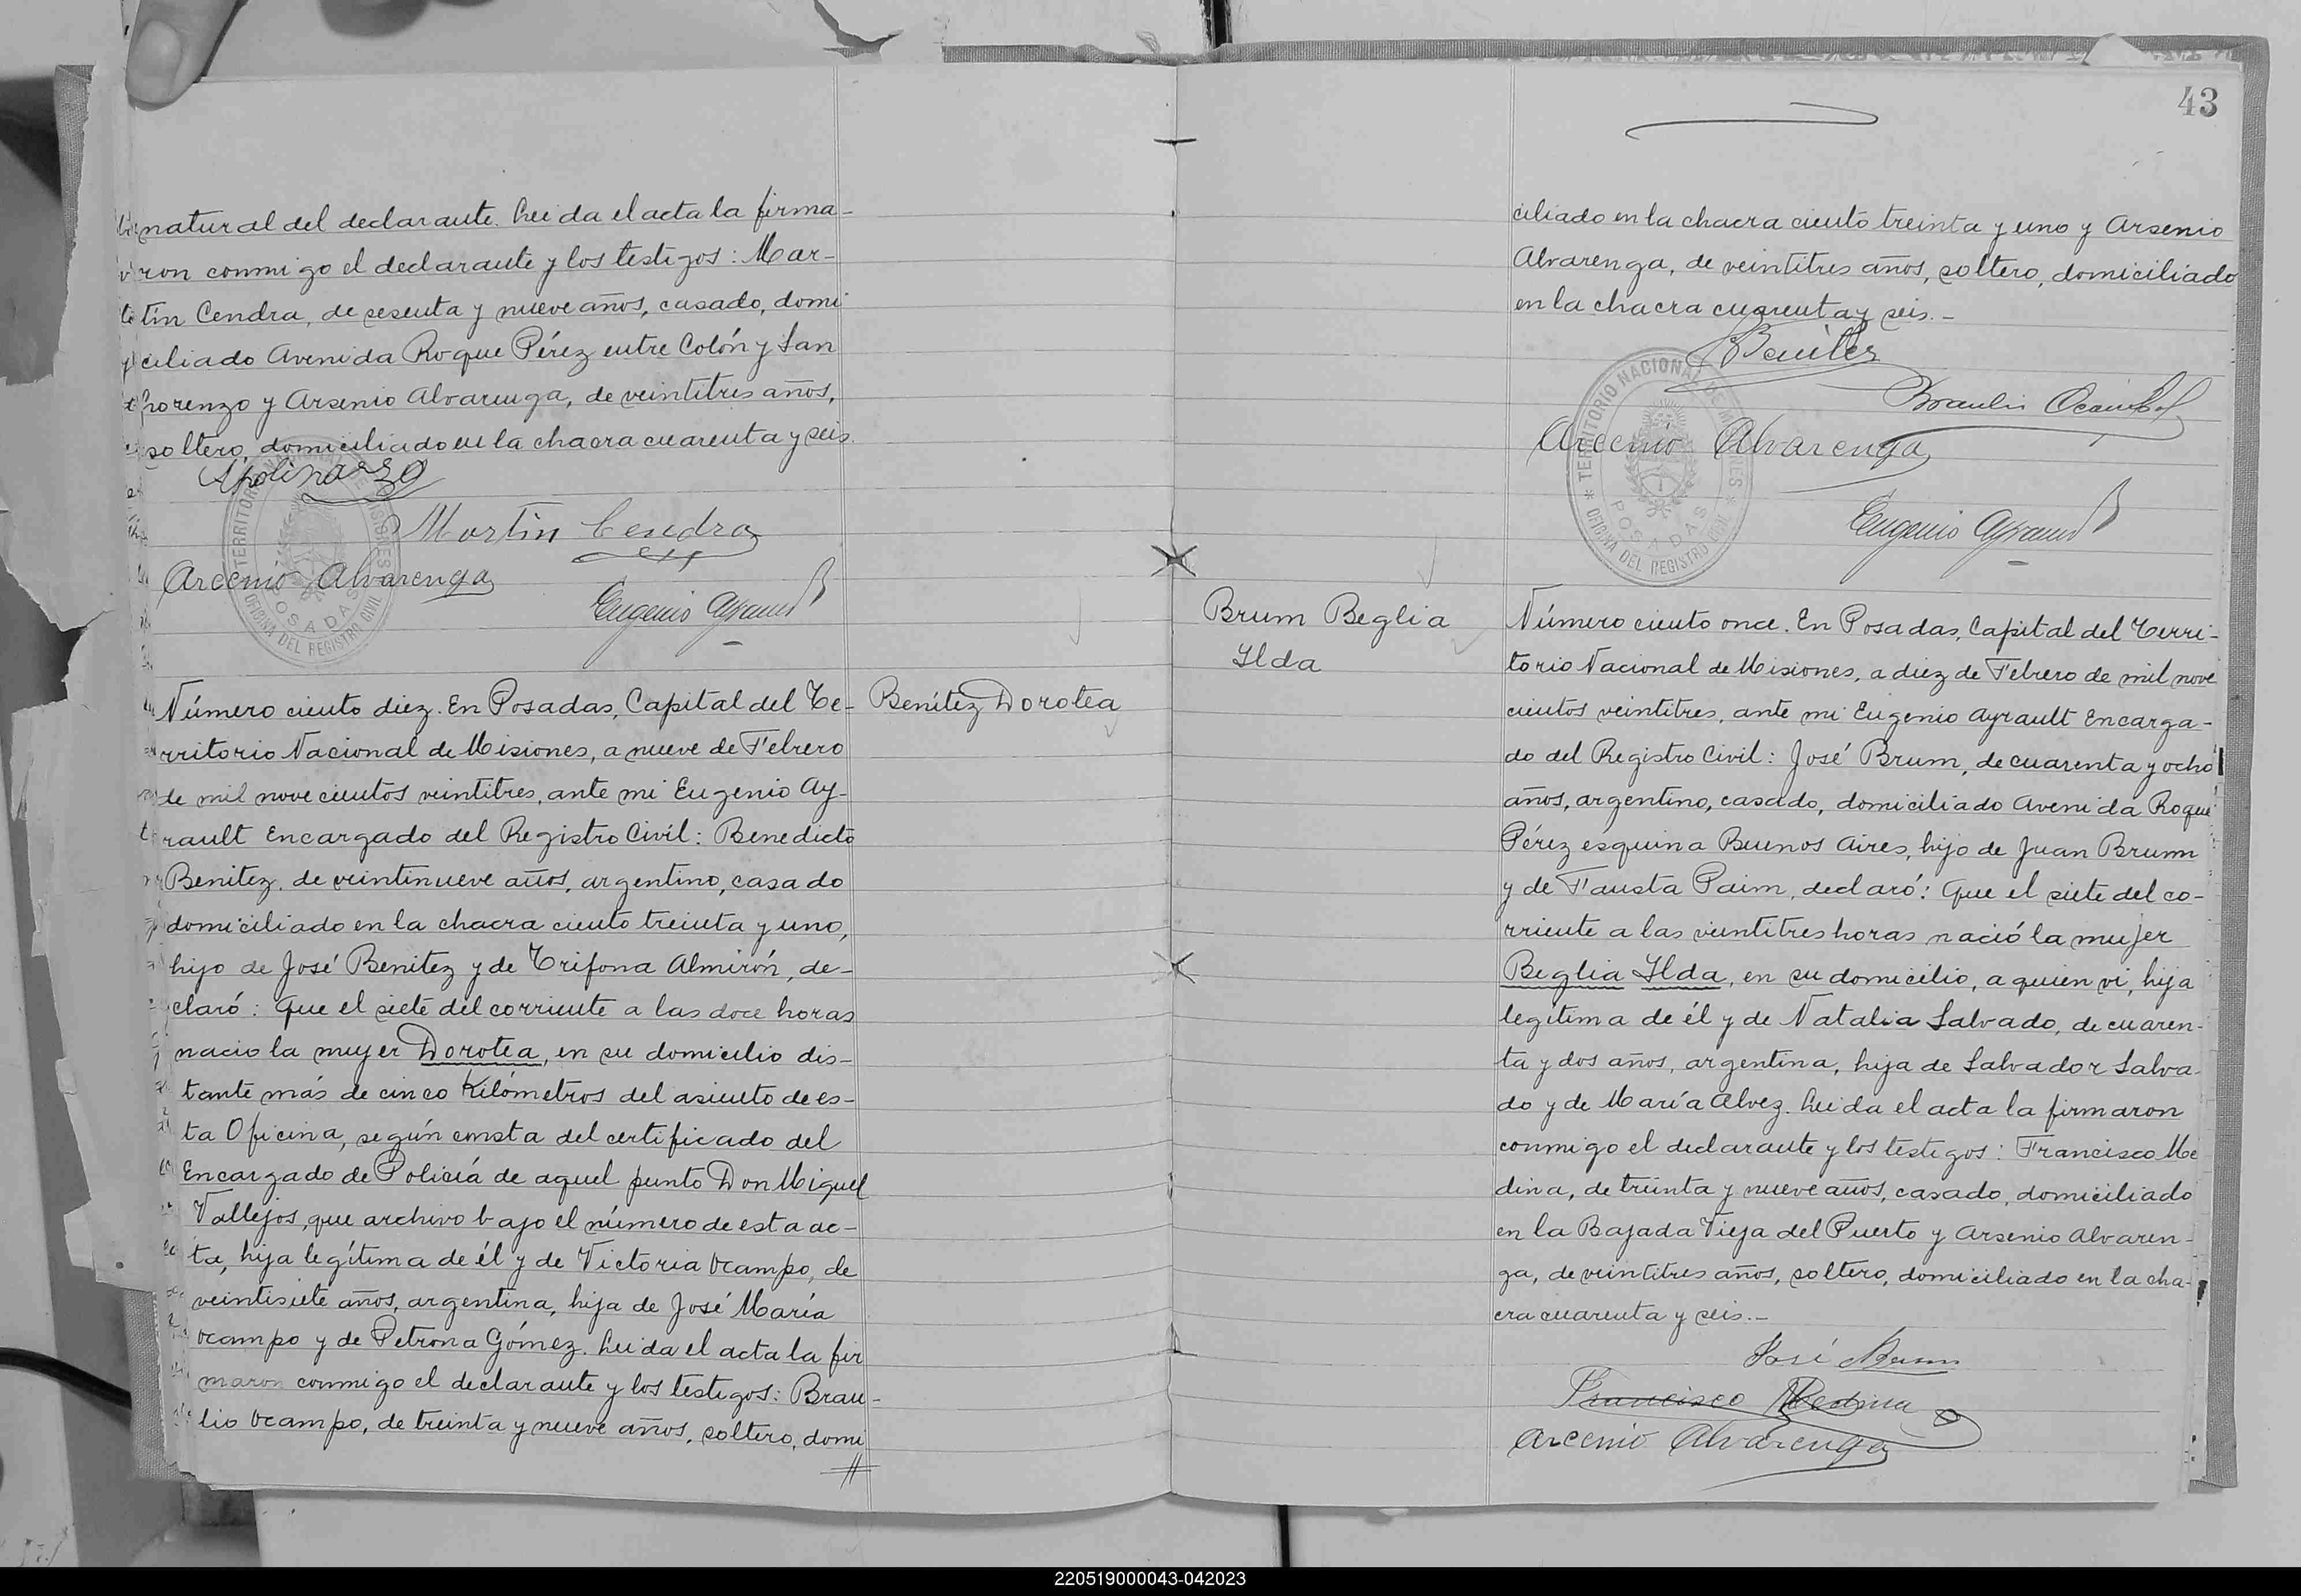 natural del declarante. Leida el acta la firma-
ron conmigo el declarante y los testigos: Mar-
tín Cendra, de sesenta y nueve años, casado, domi
ciliado Avenida Roque Pérez entre Colón y San
Lorenzo y Arsenio Alvarenga, de veintitres años,
soltero, domiciliado en la chacra cuarenta y seis.
Martin Cendra
Arcenio Alvarenga
Eugenio Ayrault
TERRITORIO NACIONAL DE MISIONES
OFICINA DEL REGISTRO CIVIL
POSADAS
Benítez Dorotea
Número ciento diez. En Posadas, Capital del Te-
rritorio Nacional de Misiones, a nueve de Febrero
de mil novecientos veintitres, ante mi Eugenio Ay-
rault Encargado del Registro Civil: Benedicto
Benitez, de veintinueve años, argentino, casado
domiciliado en la chacra ciento treinta y uno,
hijo de José Benitez y de Trifona Almirón, de-
claró: Que el siete del corriente a las doce horas
nacio la mujer Dorotea, en su domicilio dis-
tante más de cinco Kilómetros del asiento de es-
ta Oficina, según consta del certificado del
Encargado de Policía de aquel punto Don Miguel
Vallejos, que archivo bajo el número de esta ac-
ta, hija legítima de él y de Victoria Ocampo, de
veintisiete años, argentina, hija de José María
Ocampo y de Petrona Gómez. Leida el acta la fir
maron conmigo el declarante y los testigos: Brau-
lio Ocampo, de treinta y nueve años, soltero, domi
43
ciliado en la chacra ciento treinta y uno y Arsenio
Alvarenga, de veintitres años, soltero, domiciliado
en la chacra cuarenta y seis.-
Benitez
Braulio Ocampo
Arcenio Alvarenga
Eugenio Ayrault
TERRITORIO NACIONAL DE MISIONES
OFICINA DEL REGISTRO CIVIL
POSADAS
Brum Beglia
Ilda
Número ciento once. En Posadas, Capital del Terri-
torio Nacional de Misiones, a diez de Febrero de mil nove
cientos veintitres, ante mi Eugenio Ayrault Encarga-
do del Registro Civil: José Brum, de cuarenta y ocho
años, argentino, casado, domiciliado Avenida Roque
Pérez esquina Buenos Aires, hijo de Juan Brum
y de Fausta Paim, declaró: Que el siete del co-
rriente a las veintitres horas nació la mujer
Beglia Ilda, en su domicilio, a quien vi, hija
legítima de él y de Natalia Salvado, de cuaren-
ta y dos años, argentina, hija de Salvador Salva-
do y de María Alvez. Leida el acta la firmaron
conmigo el declarante y los testigos: Francisco Me
dina, de treinta y nueve años, casado, domiciliado
en la Bajada Vieja del Puerto y Arsenio Alvaren-
ga, de veintitres años, soltero, domiciliado en la cha-
cra cuarenta y seis.-
José Brum
Francisco Medina
Arcenio Alvarenga
220519000043-042023